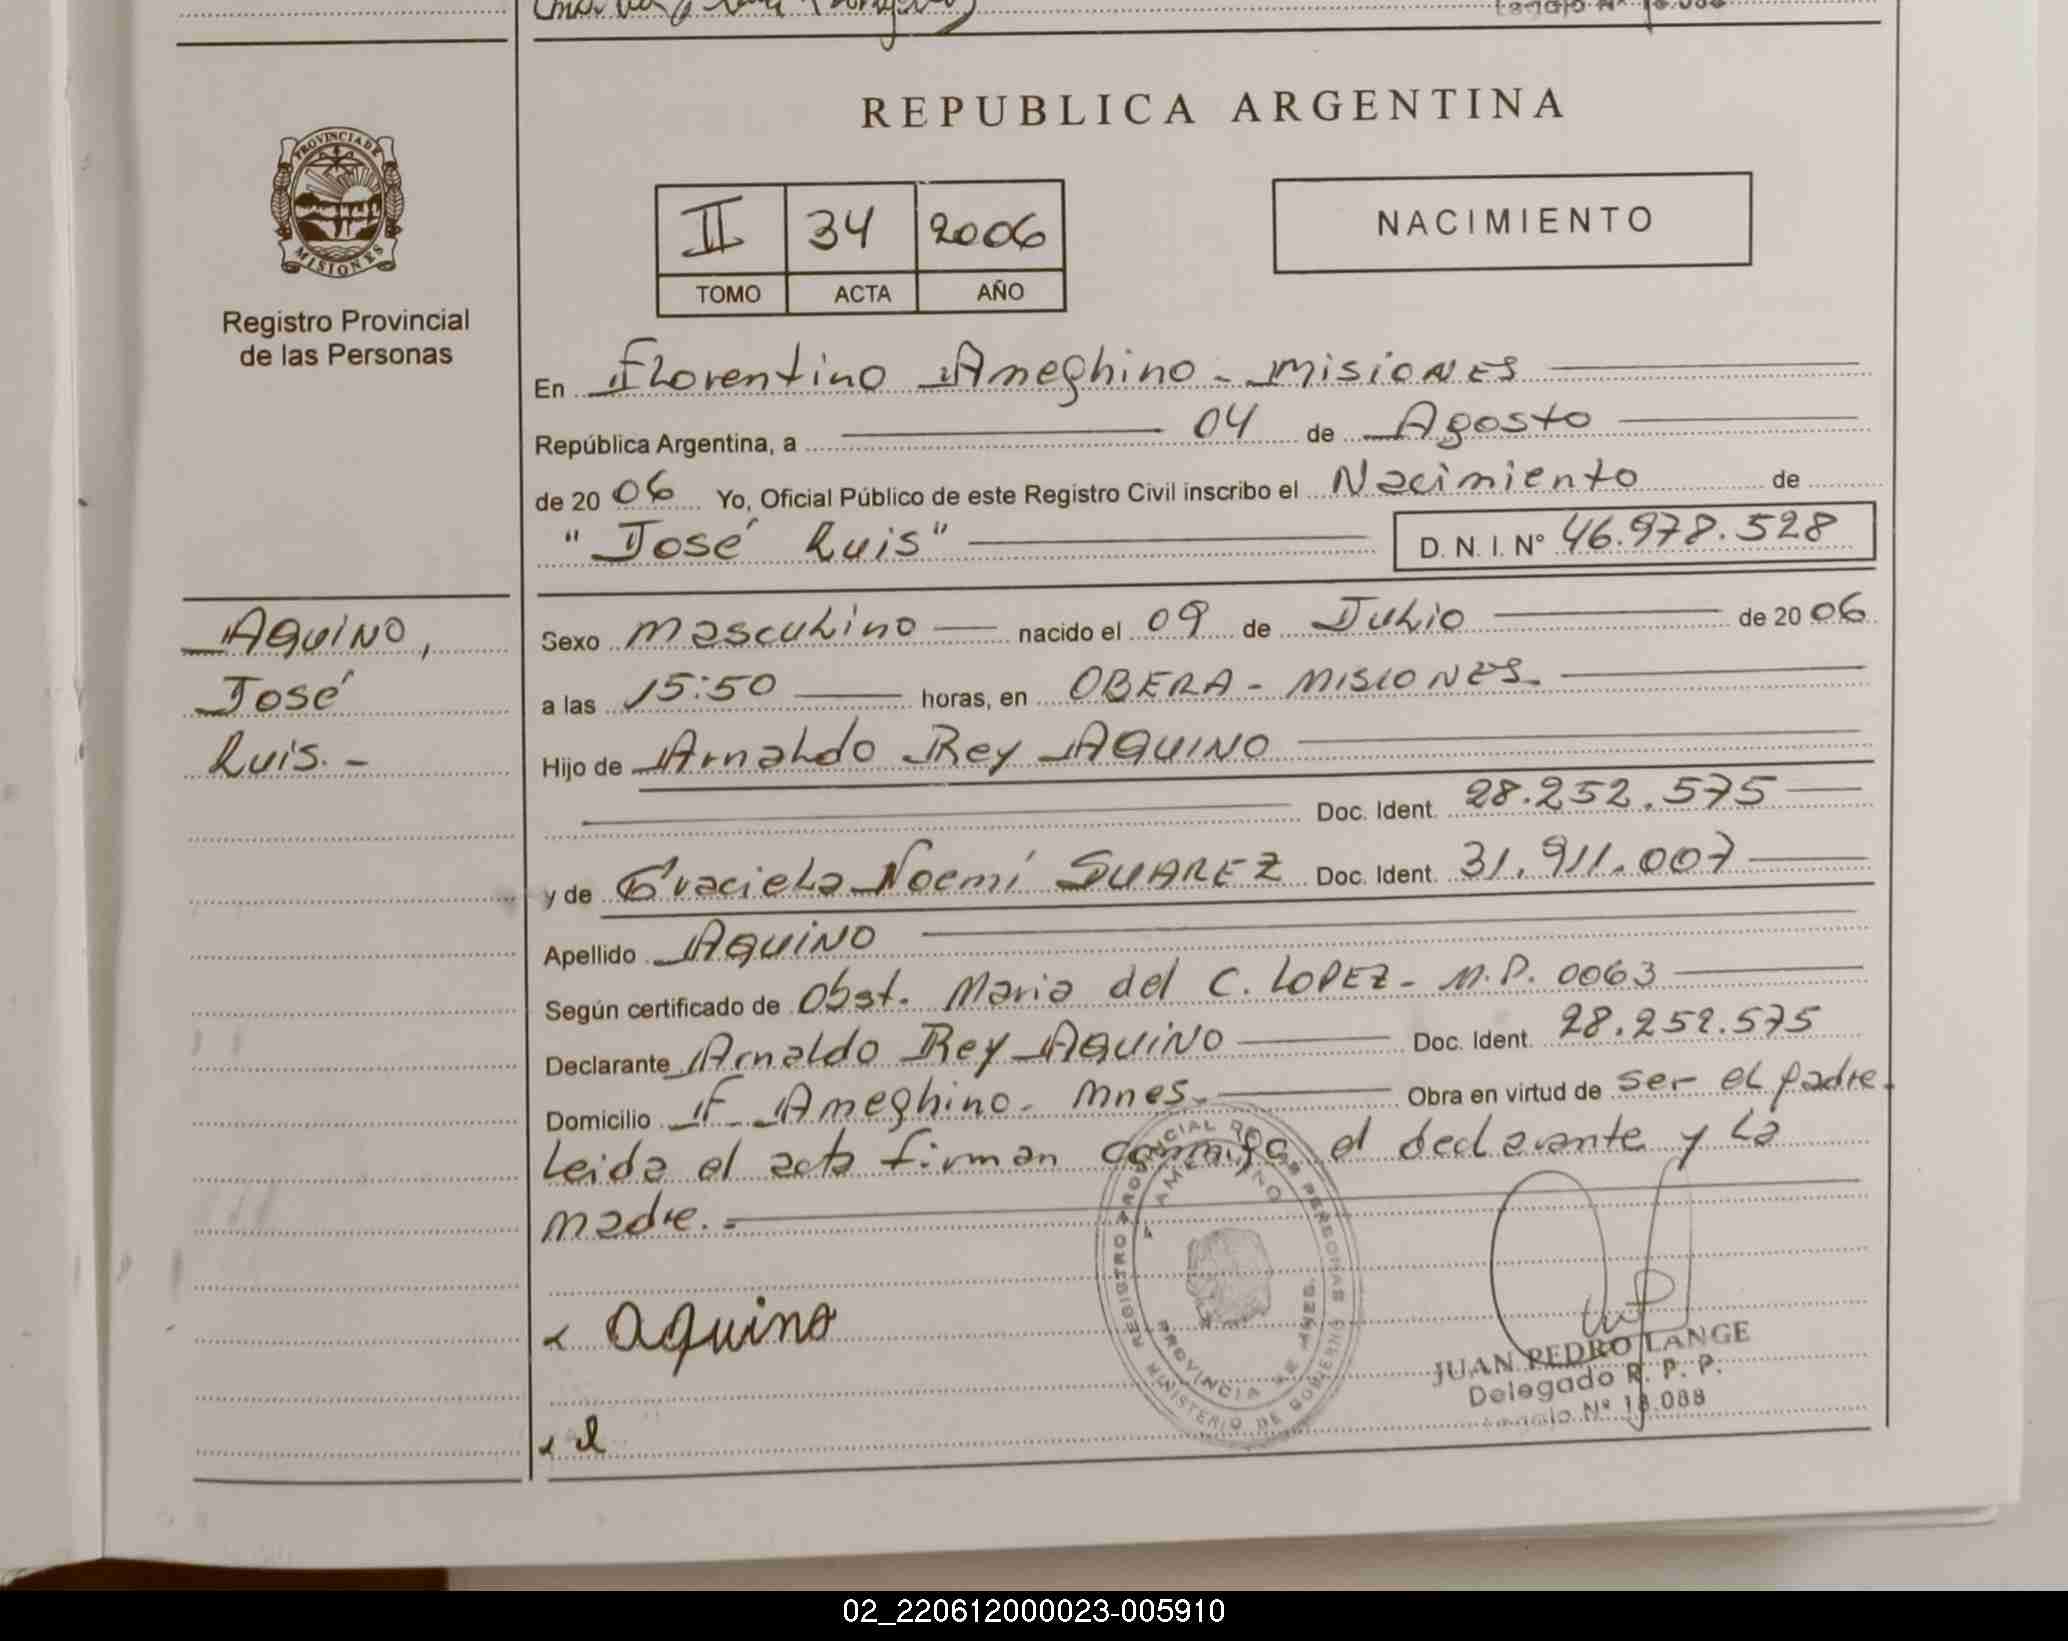 REPUBLICA ARGENTINA
PROVINCIA DE
MISIONES
Registro Provincial
de las Personas
II 34 2006
TOMO ACTA AÑO
NACIMIENTO
En Florentino Ameghino - Misiones
República Argentina, a 04 de Agosto
de 20 06 Yo, Oficial Público de este Registro Civil inscribo el Nacimiento de
"José Luis" D. N. I. Nº 46.978.528
AQUINO,
José
Luis. -
Sexo Masculino nacido el 09 de Julio de 20 06
a las 15:50 horas, en OBERA - MISIONES.
Hijo de Arnaldo Rey AQUINO
Doc. Ident. 28.252.575
y de Graciela Noemí SUAREZ Doc. Ident. 31.911.007
Apellido AQUINO
Según certificado de Obst. Maria del C. LOPEZ - M.P. 0063
Declarante Arnaldo Rey AQUINO Doc. Ident. 28.252.575
Domicilio F. Ameghino - Mnes. Obra en virtud de ser el padre.
Leida el acta firman conmigo el declarante y la
madre. -
REGISTRO PROVINCIAL DE LAS PERSONAS
AMEGHINO
PROVINCIA DE MNES.
MINISTERIO DE GOBIERNO
Aquino
JUAN PEDRO LANGE
Delegado R. P. P.
Legajo Nº 18.088
02_220612000023-005910